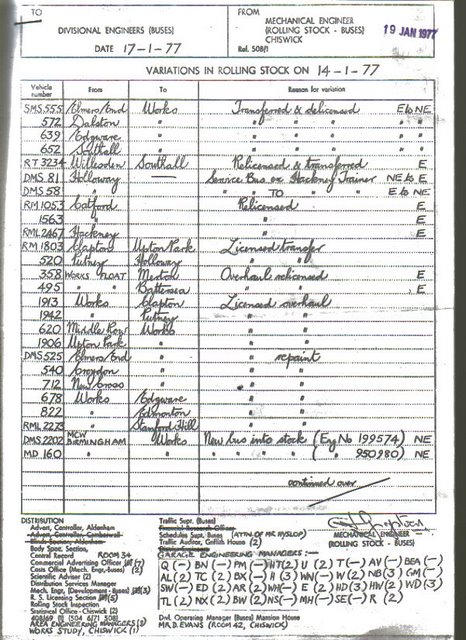 TO
FROM
MECHANICAL ENGINEER
(ROLLING STOCK - BUSES)
CHISWICK
19 JAN 1977
DIVISIONAL ENGINEERS (BUSES)
DATE 17-1-77
Ref. 508/1
VARIATIONS IN ROLLING STOCK ON 14-1-77
Vehicle number From To Reason for variation
SMS.555 Elmers/End Works Transferred & delicensed E to NE
572 Dalston " " " " " "
639 Edgware " " " " " "
652 Southall " " " " " "
RT 3234 Willesden Southall Relicensed & transferred E
DMS.81 Holloway Service Bus to Hackney Trainer NE to E
DMS 58 " " " TO " " E to NE
RM 1053 Catford Relicensed E
1563 " " E
RML 2467 Hackney " E
RM 1803 Clapton Upton Park Licensed transfer
520 Putney Holloway " "
358 WORKS FLOAT Merton Overhaul relicensed E
495 " Battersea " " E
1913 Works Clapton Licensed overhaul
1942 " Putney " "
620 Middle Row Works " "
1906 Upton Park " " "
DMS 525 Elmers/End " " repaint
540 Croydon " " "
712 New Cross " " "
678 Works Edgware " "
822 " Edmonton " "
RML 2273 " Stamford Hill " "
DMS 2202 MCW BIRMINGHAM Works New bus into stock (Eng No 199574) NE
MD 160 " " " " " " ( " 950980) NE
continued over
DISTRIBUTION
Advert. Controller, Aldenham
Advert. Controller, Camberwell
Body Spar. Section,
Central Record ROOM 34
Commercial Advertising Officer (7)
Costs Office (Mech. Engr.-Buses) (2)
Scientific Adviser (2)
Distribution Services Manager
Mech. Eng. (Development - Buses) (3)
R. S. Licensing Section
Rolling Stock Inspection
Statistical Office - Chiswick (2)
AREA ENGINEERING MANAGERS (2)
WORKS STUDY, CHISWICK (1)
Traffic Supt. (Buses)
Financial Research Officer
Schedules Supt. (Buses) (ATTN OF MR HYSLOP)
Traffic Auditor, Griffith House (2)
GARAGE ENGINEERING MANAGERS :-
MECHANICAL ENGINEER
(ROLLING STOCK - BUSES)
Q (-) BN (-) PM (-) HT(2) U (2) T (-) AV (-) BEA (-)
AL(2) TC (2) BX (-) H (3) WN (-) W (2) NB (3) GM (-)
SW(-) ED (2) AR (2) WH (-) E (2) HD (3) HW (2) WD (3)
TL (2) NX (2) BW (2) NS(-) MH (-) SE(-) R (2)
Divl. Operating Manager (Buses) Mansion House
MR D. EVANS (ROOM 42, CHISWICK)